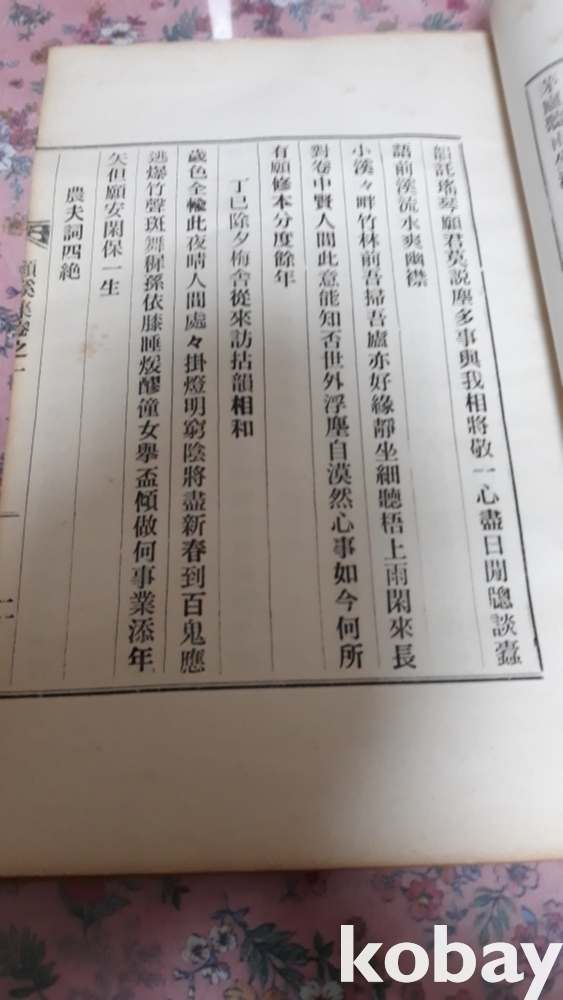 韻託瑤琴願君莫說塵多事與我相將敬一心盡日閒牕談蠧
語前溪流水爽幽襟
小溪々畔竹林前吾掃吾廬亦好緣靜坐細聽梧上雨閑來長
對卷中賢人間此意能知否世外浮塵自漠然心事如今何所
有願修本分度餘年
丁巳除夕梅舍從來訪拈韻相和
歲色全輸此夜晴人間處々掛燈明窮陰將盡新春到百鬼應
逃爆竹聲斑舞穉孫依膝睡煖醪僮女擧盃傾做何事業添年
矢但願安閑保一生
農夫詞四絶
溪集卷之一
二
茅廬
kobay